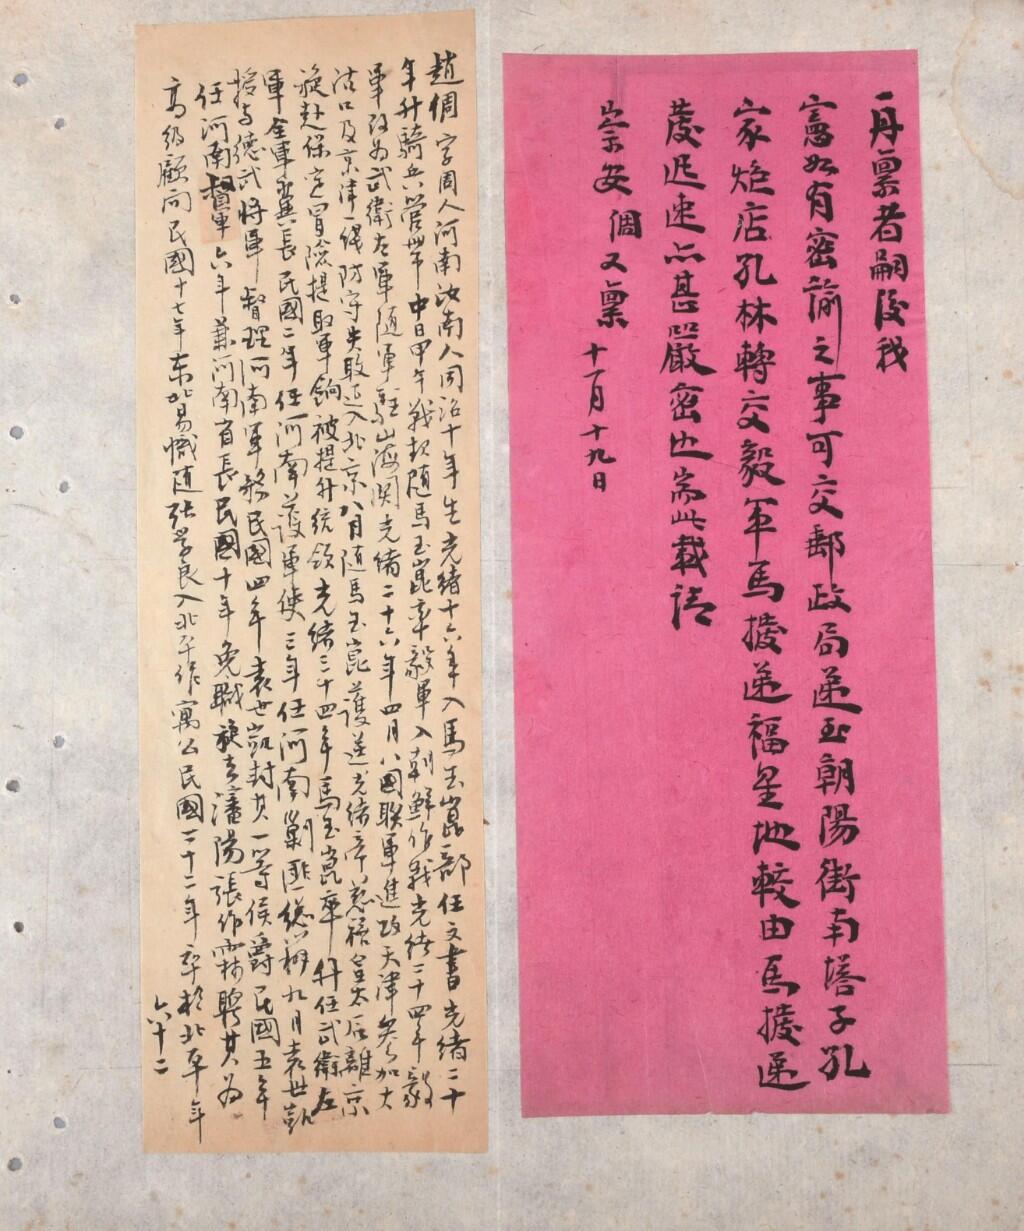 再禀者嗣後我
憲如有密諭之事可交郵政局遞至朝陽街南塔子孔
家炮店孔林轉交毅軍馬撥遞福星地較由馬撥遞
發迟速亦甚嚴密也耑此載請
崇安 倜又禀 十一月十九日
趙倜 字周人河南汝南人同治十年生光緒十六年入馬玉崑部任文書光緒二十
年升騎兵營帶中日甲午戰起随馬玉崑率毅軍入朝鮮作戰光緒二十四年毅
軍改为武衛左軍随軍駐山海関光緒二十六年四月八國联軍進攻天津参加大
沽口及京津一线防守失敗退入北京八月随馬玉崑護送光緒帝慈禧皇太后離京
旋赴保定冒险提取軍餉被提升統領光緒三十四年馬玉崑卒升任武衛左
軍全軍翼長民國二年任河南護軍使三年任河南剿匪總辦九月袁世凱
授与德武将軍督理河南軍務民國四年袁世凱封其一等侯爵民國五年
任河南督軍六年兼河南省長民國十年免職旋去瀋陽張作霖聘其为
高级顧问民國十七年东北易幟随张学良入北平作寓公民國二十二年卒於北平年
六十二